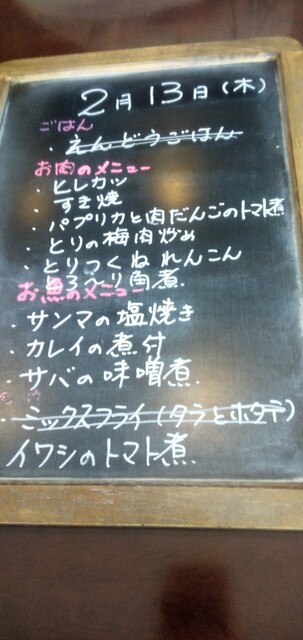 2月13日(木)
ごはん
・えんどうごはん
お肉のメニュー
・ヒレカツ
・すき焼
・パプリカと肉だんごのトマト煮
・とりの梅肉炒め
・とりつくねれんこん
・とろ〜り角煮.
お魚のメニュー
・サンマの塩焼き
・カレイの煮付
・サバの味噌煮.
・ミックスフライ(タラとホタテ)
イワシのトマト煮.